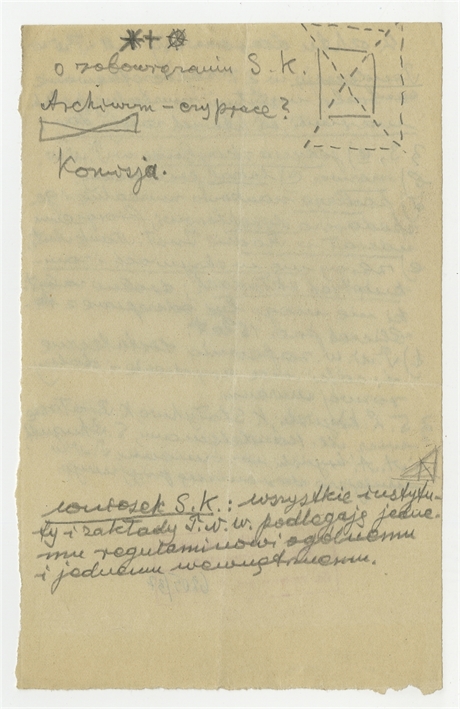 o zobowiązaniu S.K.
Archiwum – czy prace?
Komisja.
wniosek S.K.: wszystkie instytu-
ty i zakłady T.N.W. podlegają jedne-
mu regulaminowi ogólnemu
i jednemu wewnętrznemu.